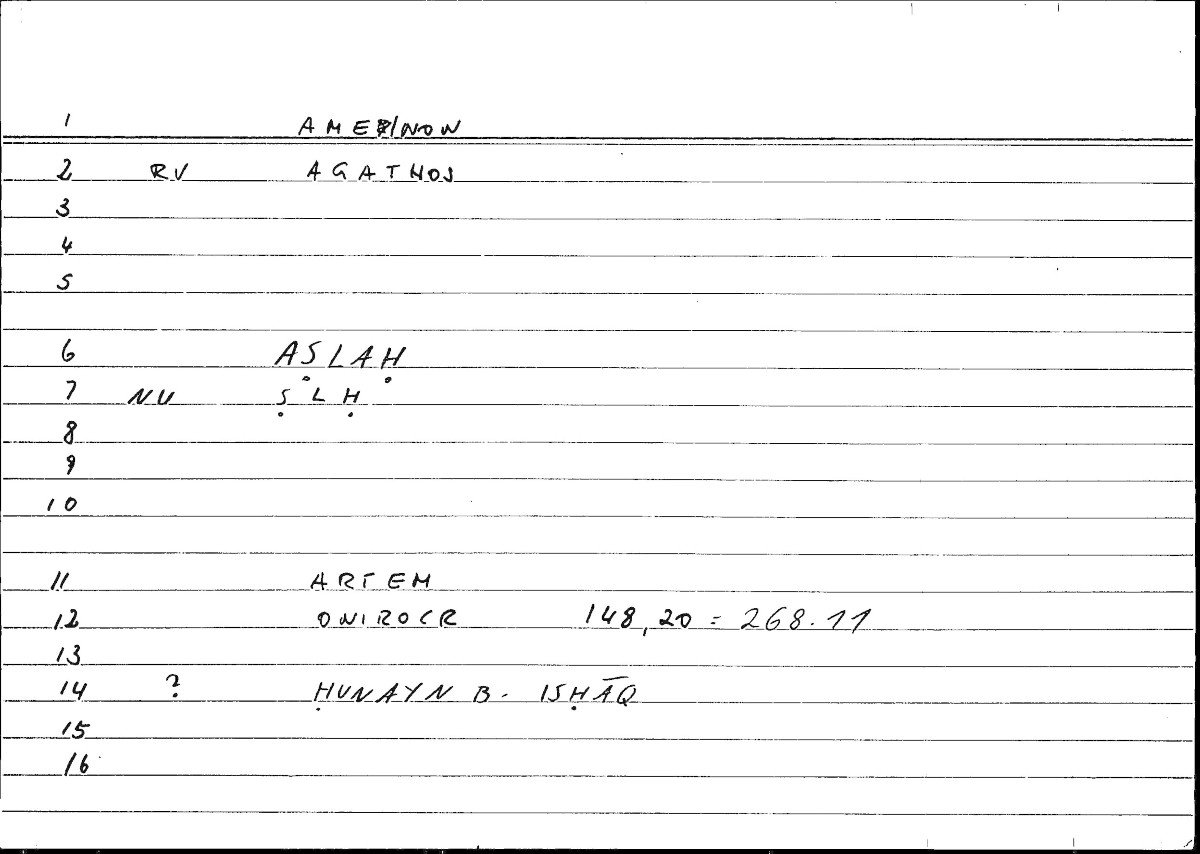 1 AME/NON
2 RV AGATHOS
3
4
5
6 AṢLAḤ
7 NU ṢLḤ
8
9
10
11 ARTEM
12 ONIROCR 148,20 = 268.11
13
14 ? ḤUNAYN B. ISḤĀQ
15
16